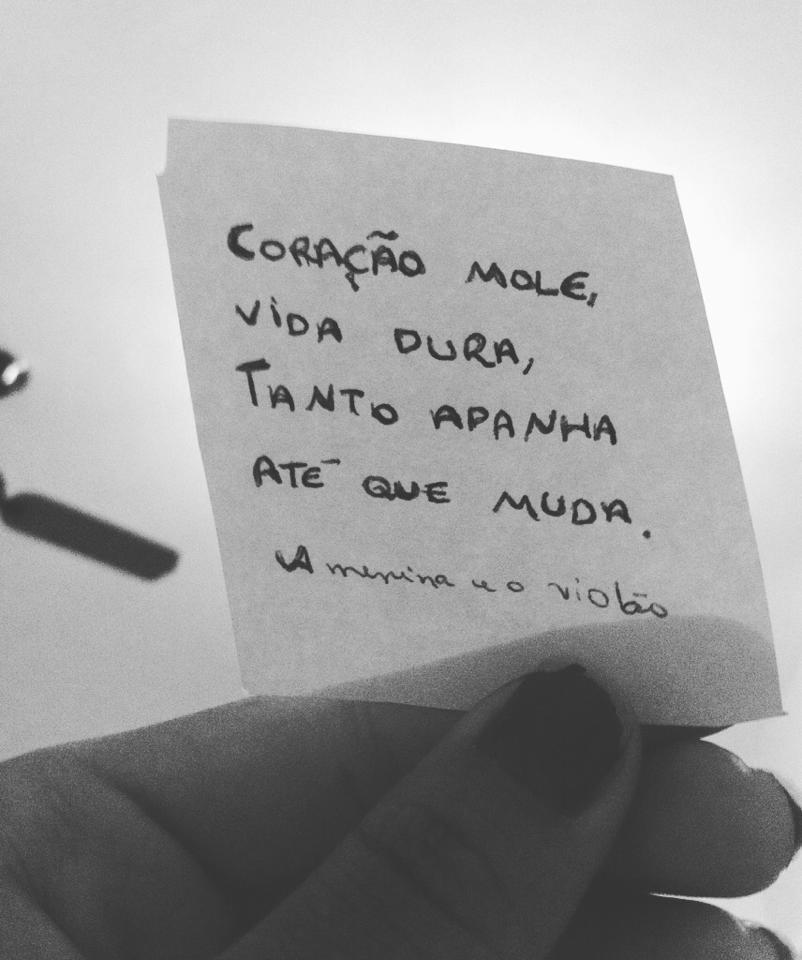 CORAÇÃO MOLE,
ViDA DURA,
TANTO APANHA
ATÉ QUE MUDA.
A menina e o violão